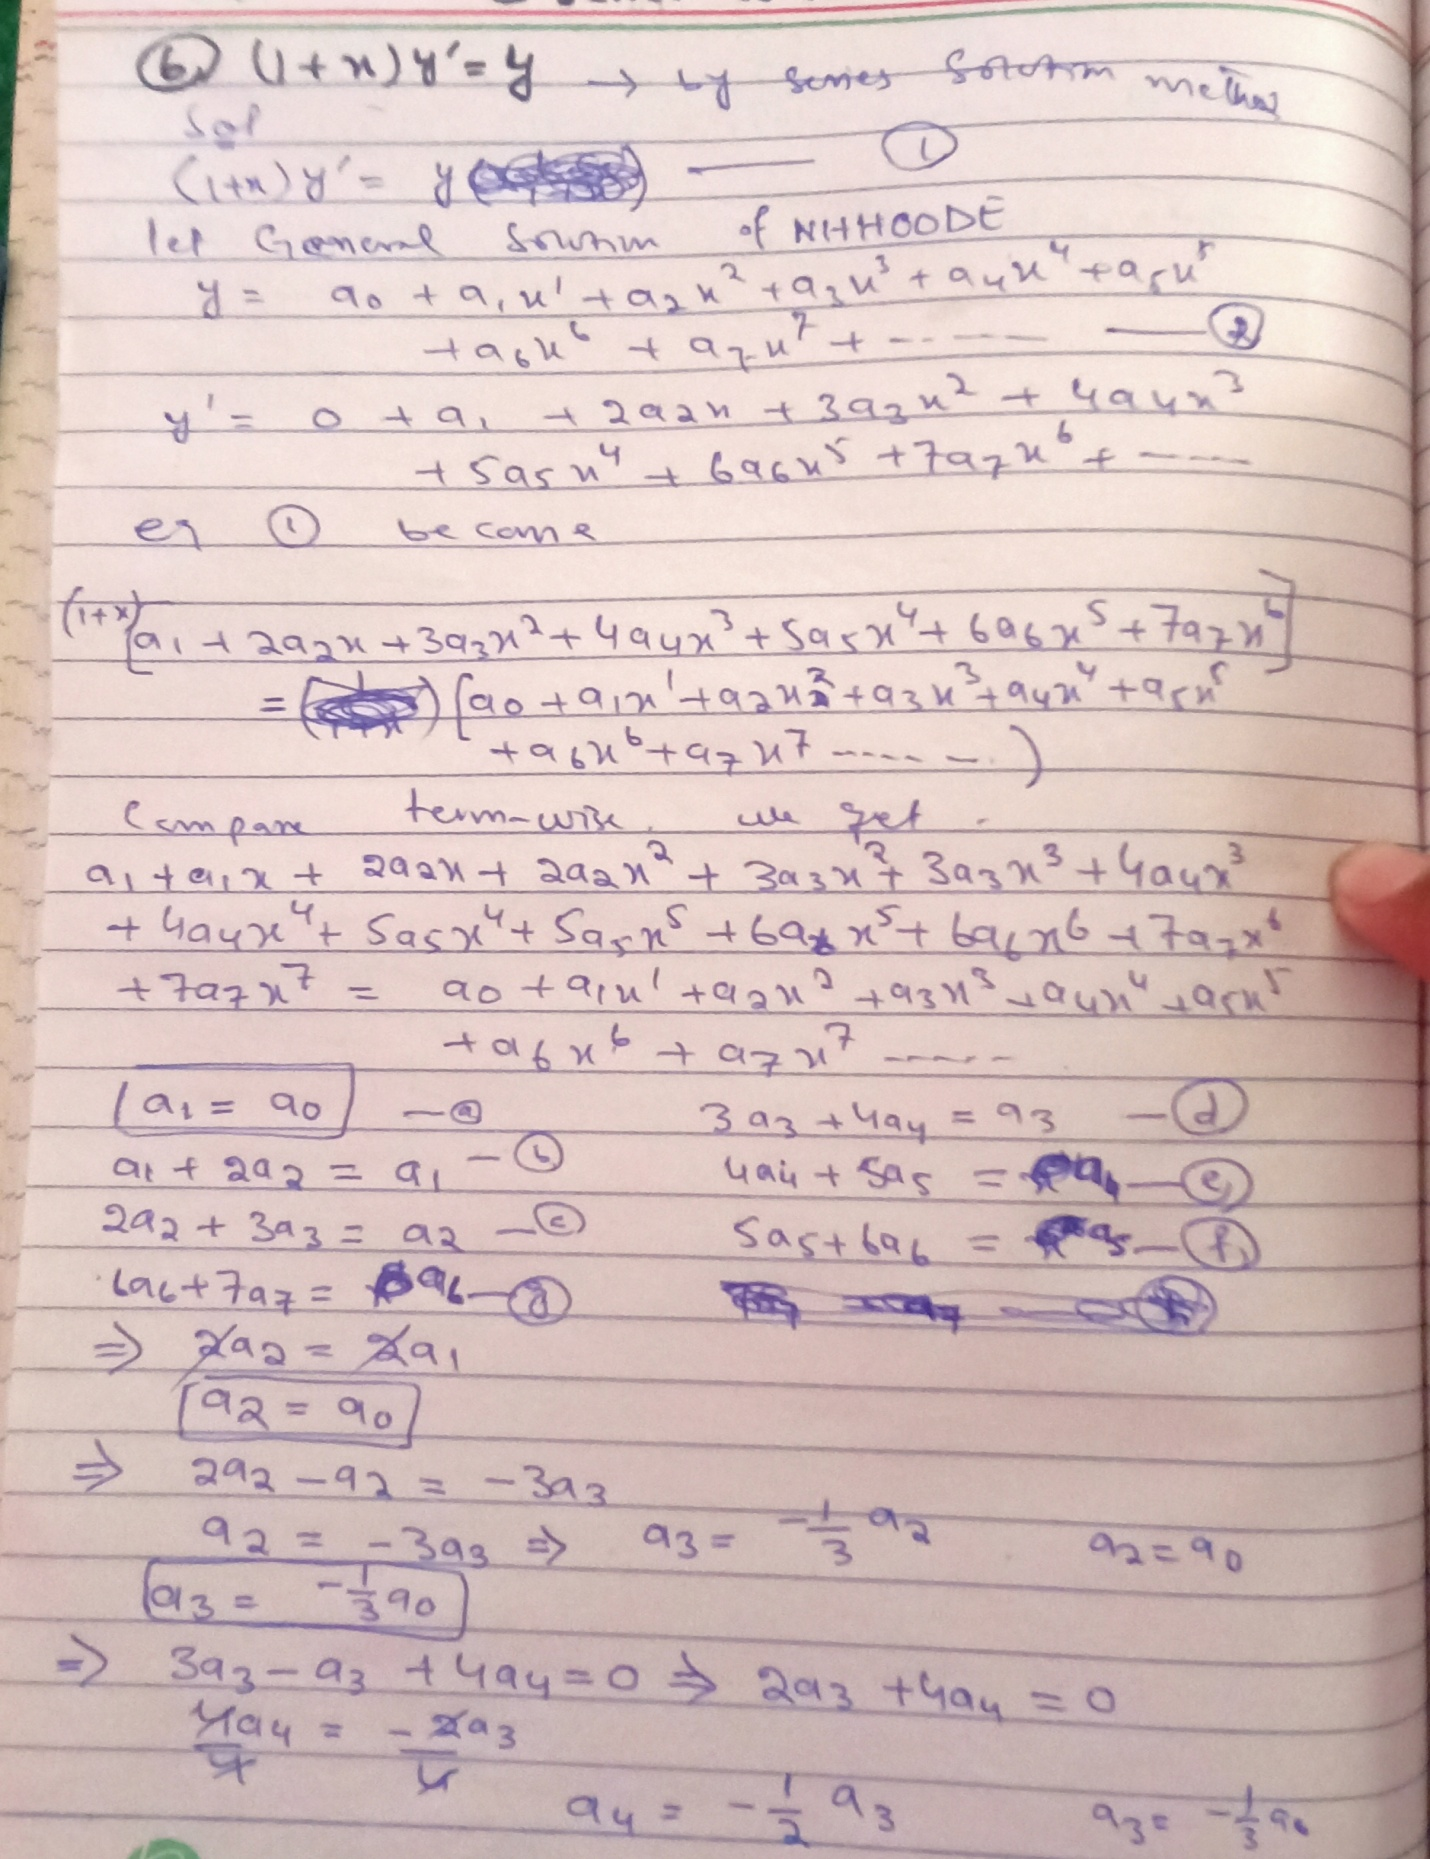 (6) (1+x)y' = y → by series solution method
Sol
(1+x)y' = y —— (1)
let General Solution of NHHOODE
y = a0 + a1x' + a2x² + a3x³ + a4x⁴ + a5x⁵
+ a6x⁶ + a7x⁷ + ------ —— (2)
y' = 0 + a1 + 2a2x + 3a3x² + 4a4x³
+ 5a5x⁴ + 6a6x⁵ + 7a7x⁶ + -----
eq (1) become
(1+x)[a1 + 2a2x + 3a3x² + 4a4x³ + 5a5x⁴ + 6a6x⁵ + 7a7x⁶]
= (a0 + a1x' + a2x² + a3x³ + a4x⁴ + a5x⁵
+ a6x⁶ + a7x⁷ ------)
Compare term-wise. we get.
a1 + a1x + 2a2x + 2a2x² + 3a3x² + 3a3x³ + 4a4x³
+ 4a4x⁴ + 5a5x⁴ + 5a5x⁵ + 6a6x⁵ + 6a6x⁶ + 7a7x⁶
+ 7a7x⁷ = a0 + a1x' + a2x² + a3x³ + a4x⁴ + a5x⁵
+ a6x⁶ + a7x⁷ -----
a1 = a0 —(a) 3a3 + 4a4 = a3 —(d)
a1 + 2a2 = a1 —(b) 4a4 + 5a5 = a4 —(e)
2a2 + 3a3 = a2 —(c) 5a5 + 6a6 = a5 —(f)
6a6 + 7a7 = a6 —(g)
⇒ 2a2 = 2a1
a2 = a0
⇒ 2a2 - a2 = -3a3
a2 = -3a3 ⇒ a3 = -1/3 a2 a2 = a0
a3 = -1/3 a0
⇒ 3a3 - a3 + 4a4 = 0 ⇒ 2a3 + 4a4 = 0
4a4/4 = -2a3/4
a4 = -1/2 a3 a3 = -1/3 a0